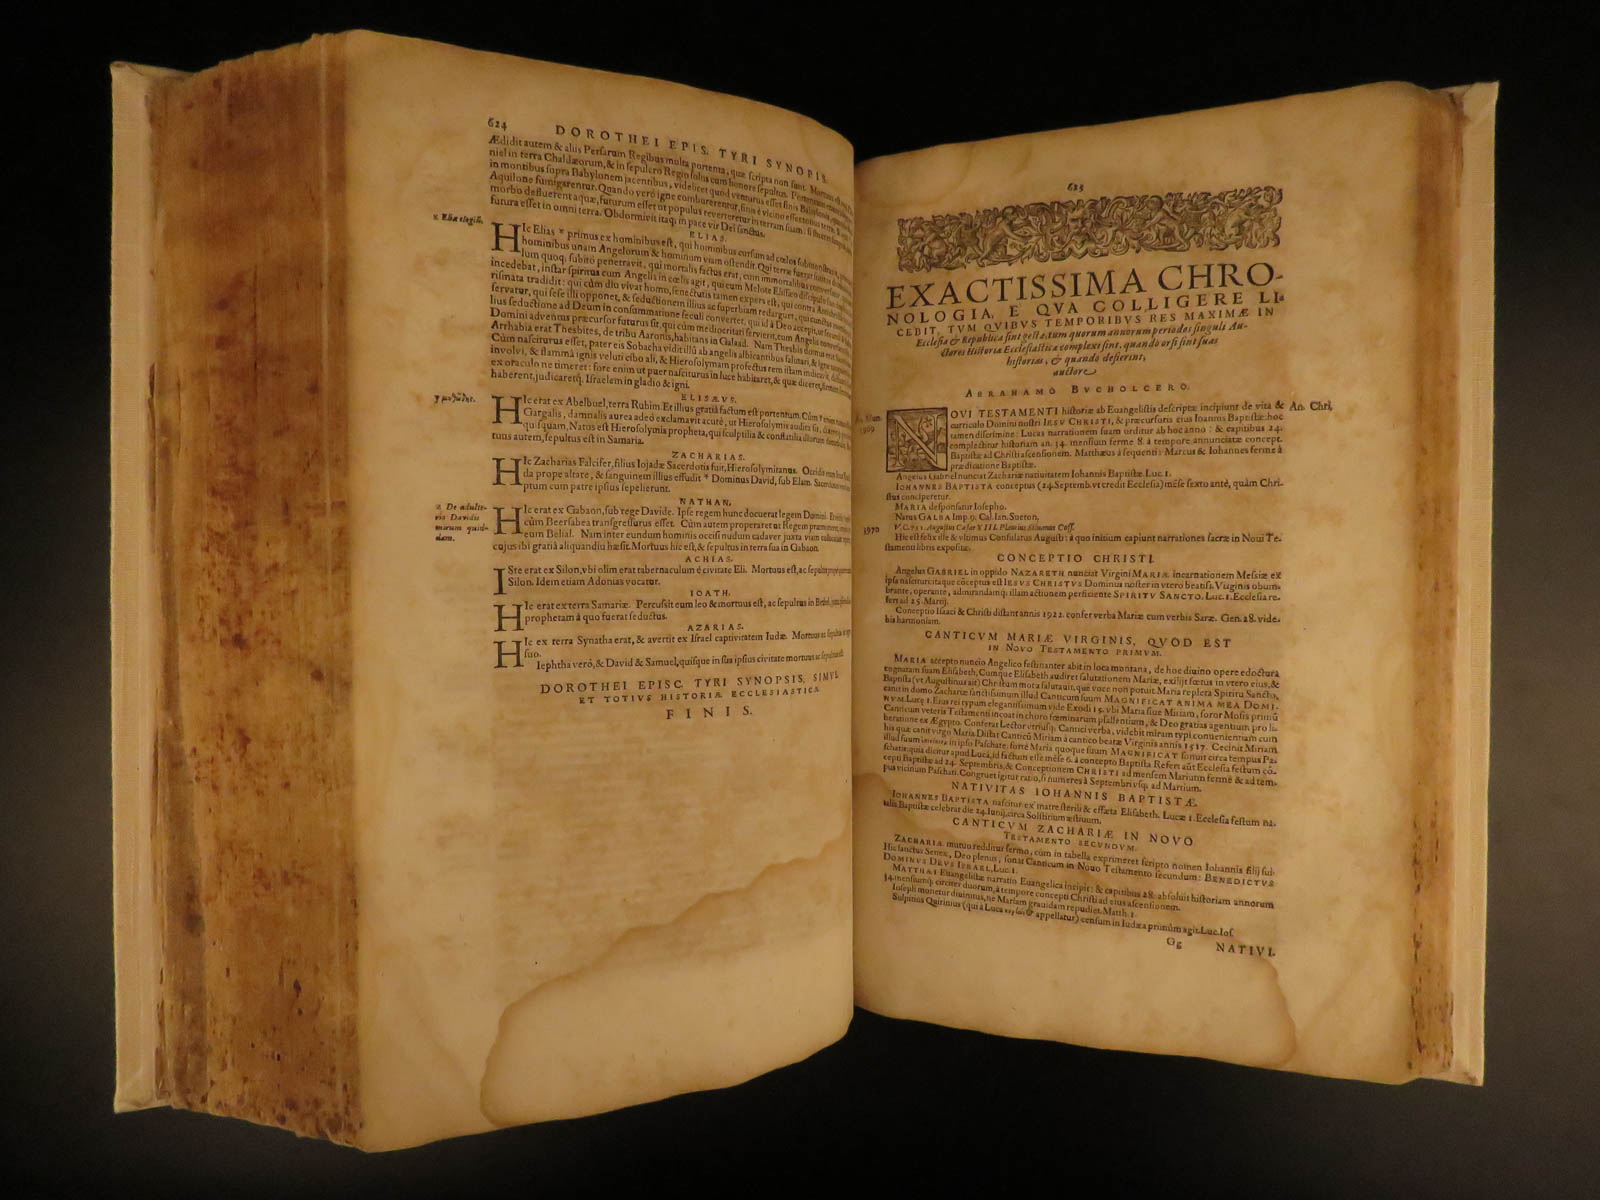 624
DOROTHEI EPIS. TYRI SYNOPIS.
Ædidit autem & aliis Persarum Regibus multa portenta, quæ scripta non sunt. Mortuus
niel in terra Chaldæorum, & in sepulcro Regio solus cum honore sepultus.
in montibus supra Babylonem jacentibus, videlicet quod venturus esset finis Babylonis,
Aquilone fumigarentur. Quando verò igne comburerentur, finis
morbo defluerent aquæ, futurum esset ut populus reverteretur in terram suam:
futura esset in omni terra. Obdormivit itaq; in pace vir Dei sanctus.
ELIAS.
x Eliæ elogiũ.
HIc Elias * primus ex hominibus est, qui hominibus cursum ad cœlos
hominibus unam Angelorum & hominum viam ostendit. Qui terræ
lum quoq; subitò penetravit, qui mortalis factus erat, cum immortalibus conversatur,
incedebat, instar spiritus cum Angelis in cœlis agit, qui cum Melote Elissæo discipulo suo
rismata tradidit: qui cùm diu vivat homo, senectutis tamen expers est, qui contra Antichristum
servatur, qui sese illi opponet, & seductionem illius ac superbiam redarguet, qui cunctos
lius seductione ad Deum in consummatione seculi convertet,
Domini adventus præcursor futurus sit, qui cùm mediocritati serviverit, cum Angelis
Arrhabia erat Thesbites, de tribu Aaronis, habitans in Galaad. Nam Thesbis domus erat
Cùm nasciturus esset, pater eis Sobacha vidit illũ ab angelis albicantibus salutari, & ignis
involvi, & flammâ ignis veluti cibo ali, & Hierosolymam profectus rem istam indicavit,
ex oraculo ne timeret: fore enim ut puer nasciturus in luce habitaret, & quæ diceret,
haberent, judicaretq; Israelem in gladio & igni.
ELISÆVS.
HIc erat ex Abelbuel, terra Rubim. Et illius gratiâ factum est portentum. Cùm
Gargalis, damnalis aurea adeo exclamavit acutè, ut Hierosolymis audita sit,
quisquam, Natus est Hierosolymis propheta, qui sculptilia & conflatilia illorum
tuus autem, sepultus est in Samaria.
ZACHARIAS.
HIc Zacharias Falcifer, filius Iojadæ Sacerdotis fuit, Hierosolymitanus. Occidit
da prope altare, & sanguinem illius effudit * Dominus David, sub Elam. Sacerdotes
ptum cum patre ipsius sepelierunt.
NATHAN,
z De adulte-
rio Davidis
mirum quid-
dam.
HIc erat ex Gabaon, sub rege Davide. Ipse regem hunc docuerat legem Domini.
cùm Beersabea transgressurus esset. Cùm autem properaret ut Regem
eum Belial. Nam inter eundum hominis occisi nudum cadaver juxta viam
cujus ibi gratiâ aliquandiu hæsit. Mortuus hic est, & sepultus in terra sua in Gabaon.
ACHIAS.
ISte erat ex Silon, vbi olim erat tabernaculum è civitate Eli. Mortuus est, ac sepultus
Silon. Idem etiam Adonias vocatur.
IOATH,
HIc erat ex terra Samariæ. Percussit eum leo & mortuus est, ac sepultus in Bethel,
prophetam à quo fuerat seductus.
AZARIAS.
HIc ex terra Synatha erat, & avertit ex Israel captivitatem Iudæ. Mortuus ac sepultus in agro
suo.
Iephtha verò, & David & Samuel, quisque in sua ipsius civitate mortuus ac sepultus est.
DOROTHEI EPISC. TYRI SYNOPSIS, SIMVL
ET TOTIVS HISTORIÆ ECCLESIASTICÆ
FINIS.
625
EXACTISSIMA CHRO-
NOLOGIA, E QVA COLLIGERE LI-
CEBIT, TVM QVIBVS TEMPORIBVS RES MAXIMÆ IN
Ecclesia & Republica sint gestæ, tum quorum annorum periodos singuli Au-
ctores Historiæ Ecclesiasticæ complexi sint, quando orsi sint suas
historias, & quando desierint,
auctore
ABRAHAMO BVCHOLCERO.
An. Chri,
3969
NOVI TESTAMENTI historiæ ab Euangelistis descriptæ incipiunt de vita &
curriculo Domini nostri IESV CHRISTI, & præcursoris eius Ioannis Baptistæ: hoc
tamen discrimine: Lucas narrationem suam orditur ab hoc anno: & capitibus 24.
complectitur historiam an. 34. mensium ferme 8. à tempore annunciatæ concept.
Baptistæ ad Christi ascensionem. Matthæus à sequenti: Marcus & Iohannes ferme à
prædicatione Baptistæ.
Angelus Gabriel nunciat Zachariæ natiuitatem Iohannis Baptistæ. Luc. 1.
IOHANNES BAPTISTA conceptus (24. Septemb. vt credit Ecclesia) mẽse sexto antè, quàm Chri-
stus conciperetur.
MARIA desponsatur Iosepho.
Natus GALBA Imp. 9. Cal. Ian. Sueton.
3970
V.C. 751. Augustus Cæsar XIII. Plautius Siluanus Coss.
Hic est felix ille & vltimus Consulatus Augusti: à quo initium capiunt narrationes sacræ in Noui Te-
stamenti libris expositæ.
CONCEPTIO CHRISTI.
Angelus GABRIEL in oppido NAZARETH nunciat Virgini MARIÆ incarnationem Messiæ ex
ipsa nascituri: itaque cõceptus est IESVS CHRISTVS Dominus noster in vtero beatiss. Virginis obum-
brante, operante, admirandamq; illam actionem perficiente SPIRITV SANCTO. Luc. 1. Ecclesia re-
fert ad 25. Martij.
Conceptio Isaaci & Christi distant annis 1922. confer verba Mariæ cum verbis Saræ. Gen. 28. vide-
bis harmoniam.
CANTICVM MARIÆ VIRGINIS, QVOD EST
IN NOVO TESTAMENTO PRIMVM.
MARIA accepto nuncio Angelico festinanter abit in loca montana, de hoc diuino opere edoctura
cognatam suam Elisabeth, Cumque Elisabeth audiret salutationem Mariæ, exilijt fœtus in vtero eius, &
Baptista (vt Augustinus ait) Christum motu salutauit, que voce non potuit. Maria repleta Spiritu Sancto,
canit in domo Zachariæ sanctissimum illud Canticum suum MAGNIFICAT ANIMA MEA DOMI-
NVM. Lucæ 1. Eius rei typum elegantissimum vide Exodi 15. vbi Maria siue Miriam, soror Mosis primũ
Canticum veteris Testamenti incoat in choro fœminarum psallentium, & Deo gratias agentium pro li-
beratione ex Ægypto. Conferat Lector vtriusq; Cantici verba, videbit mirum typi conuenientiam cum
his quæ canit virgo Maria. Distat Canticũ Miriam à cantico beatæ Virginis annis 1517. Cecinit Miriam
illud suum in ipso Paschate: fortè Maria quoque suum MAGNIFICAT sonuit circa tempus Pa-
schatis: quia dicitur apud Lucã, id factum esse mẽse 6. à concepto Baptista. Refert aũt Ecclesia festum cõ-
cepti Baptistæ ad 24. Septembris, & Conceptionem CHRISTI ad mensem Martium fermè & ad tem-
pus vicinum Paschati. Congruet igitur ratio, si numeres à Septembri vsq; ad Martium.
NATIVITAS IOHANNIS BAPTISTÆ.
IOHANNES BAPTISTA nascitur ex matre sterili & effœta Elisabeth. Lucæ 1. Ecclesia festum na-
talis Baptistæ celebrat die 24. Iunij, circa Solstitium æstiuum.
CANTICVM ZACHARIÆ IN NOVO
TESTAMENTO SECVNDVM.
ZACHARIÆ muto redditur sermo, cùm in tabella exprimeret scripto nomen Iohannis filij sui.
Hic sanctus Senex, Deo plenus, sonat Canticum in Nouo Testamento secundum: BENEDICTVS
DOMINVS DEVS ISRAEL, Luc. 1.
MATTHÆI Euangelistæ narratio Euangelica incipit: & capitibus 28. absoluit historiam annorum
34. mensiumq; circiter duorum, à tempore concepti Christi ad eius ascensionem.
Ioseph monetur diuinitus, ne Mariam grauidam repudiet. Matth. 1.
Sulpitius Quirinius (qui à Luca appellatur) censum in Iudæa primũm agit. Luc. Ios
Gg
NATIVI.